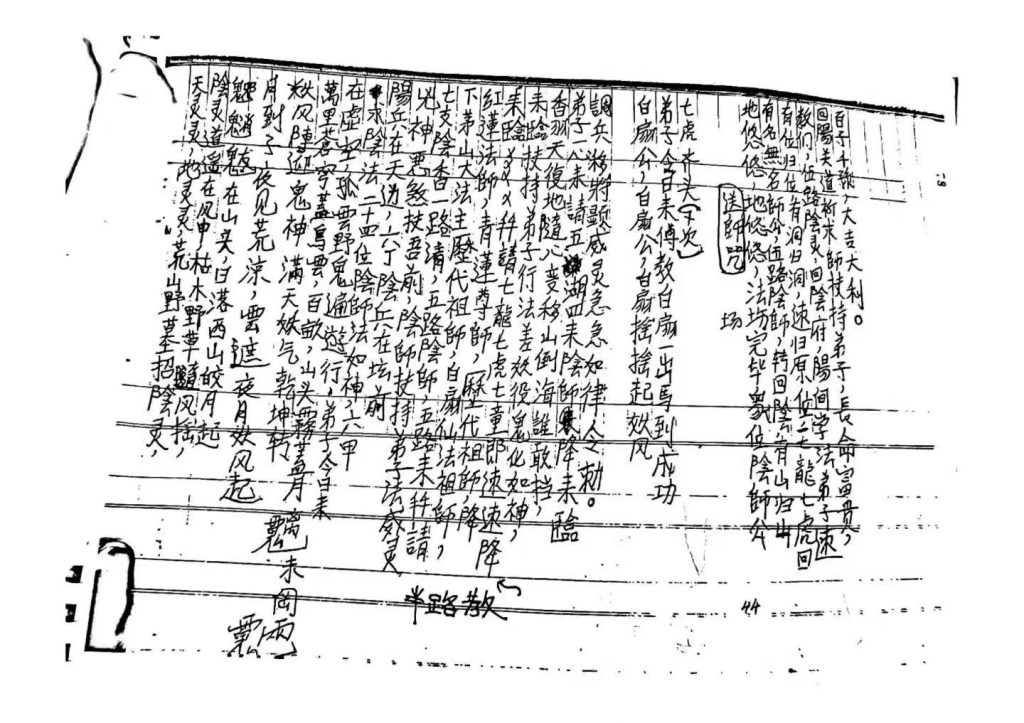 天灵灵,地灵灵,荒山野墓招陰灵,
陰灵逍遥在风中枯木野草隨风搖,
魑魅魍在山头,日落西山皎月起
月到子夜见荒凉,雲遮夜月妖风起
秋风陣迎鬼神满天妖气乾坤转
萬里苍穹盖烏雲,百畝山头霧盖月
在虚空孤雲野鬼遍遊行,弟子今日来
求陰法二十四位陰師法如神,六甲
陽兵在天边,六丁陰兵在坛前
兇神惡煞扶吾前,陰師扶持弟子法威灵
七支陰香一路請,五路陰師,五路来拜請
下茅山大法主歷代祖師,白扇仙法祖師,
紅蓮法師,青蓮尊師,歷代祖師,降
来臨拜請七龍七虎七童郎速速降
来臨扶持弟子行法差效役鬼化如神,
天復地隨心变移山倒海誰敢挡,
弟子一心来請五湖四来陰師降来臨
調兵将将题威灵急急如律令勅。
白扇公,白扇公,白扇搖搖起妖风
弟子今日来傅教白扇一出馬到成功
七虎木头(下次)
送師咒
场
地悠悠,地悠悠,法坊完毕衆位陰師公
有名無名師公伍路陰師,转回陰有山归山
有位归位有洞归洞,速归原位二七龍七虎回
教们,位路陰灵,回陰府陽间学法弟子速
回陽关道祈求師扶持弟子,長命富貴,
百子千孫,大吉大利。
半路教
44